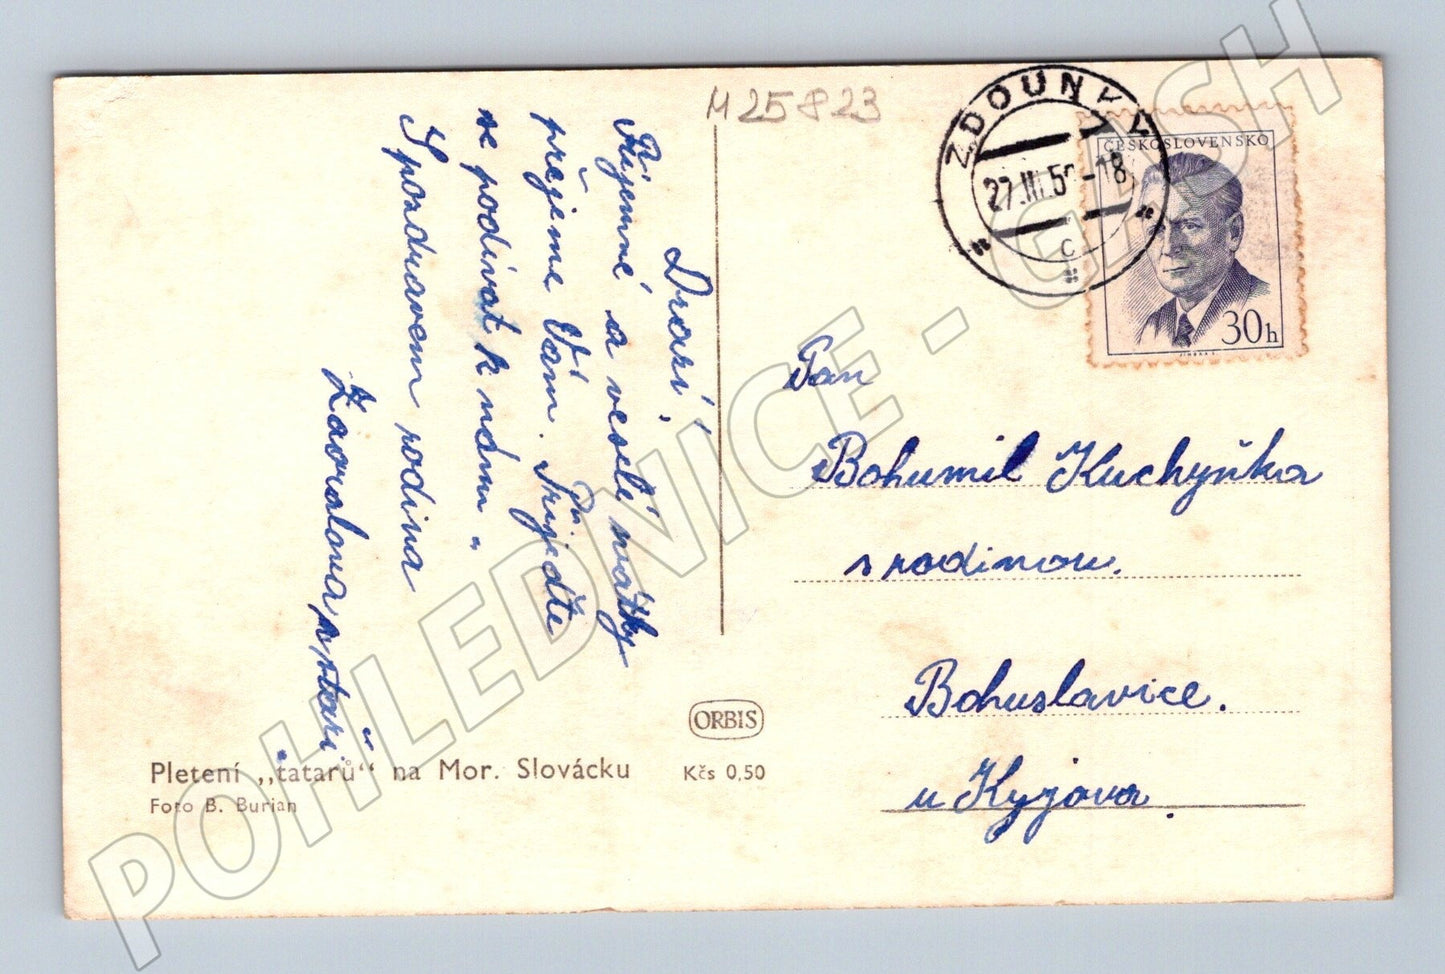 M 25823
ZDOUNKY
27.III.5 -18
C
ČESKOSLOVENSKO
30h
Drazí,
Příjemné a veselé svátky
přejeme Vám. Přijeďte
se podívat k nám.
S pozdravem rodina
Zaoralova a staří.
Pan
Bohumil Kuchyňka
s rodinou.
Bohuslavice.
u Kyjova
ORBIS
Pletení „tatarů“ na Mor. Slovácku
Kčs 0,50
Foto B. Burian
POHLEDNICE - CASH